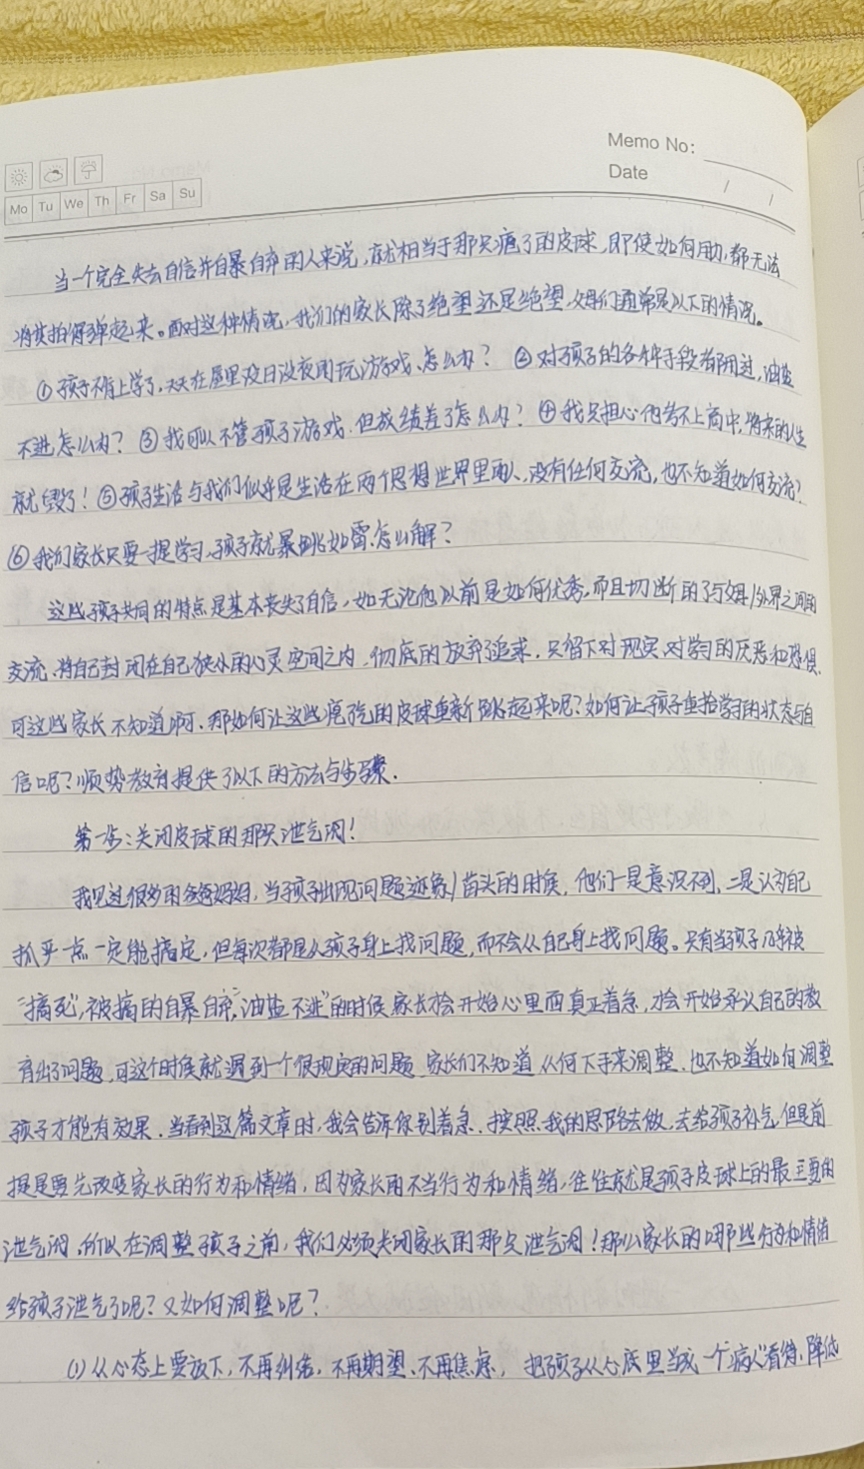 Memo No:
Date / /
Mo Tu We Th Fr Sa Su
当一个完全失去自信并自暴自弃的人来说,就相当于那只瘪了的皮球,即使如何用力,都无法
将其拍得弹起来。面对这种情况,我们的家长除了绝望还是绝望,他们通常是以下的情况。
①孩子不肯上学了,天天在屋里没日没夜的玩游戏、怎么办? ②对孩子的各种手段都用过,油盐
不进怎么办? ③我可以不管孩子游戏,但成绩差了怎么办? ④我只担心他考不上高中,将来的人生
就毁了! ⑤孩子生活与我们似乎是生活在两个思想世界里的人,没有任何交流,也不知道如何交流?
⑥我们家长只要一提学习,孩子就暴跳如雷怎么解?
这些孩子共同的特点是基本丧失了自信,如无论他以前是如何优秀,而且切断的了与外界之间的
交流、将自己封闭在自己狭小的心灵空间之内,彻底的放弃追求,只留下对现实、对学习的厌恶和恐惧,
可这些家长不知道啊,那如何让这些瘪气的皮球重新跳起来呢?如何让孩子重拾学习的状态与自
信呢?顺势教育提供了以下的方法与步骤.
第一步:关闭皮球的那只泄气阀!
我见过很多的爸爸妈妈,当孩子出现问题迹象/苗头的时候,他们一是意识不到,二是认为自己
抓乎一点一定能搞定,但每次都是从孩子身上找问题,而不会从自己身上找问题。只有当孩子几乎被
“搞死”,被搞的自暴自弃,“油盐不进”的时候家长才会开始心里面真正着急,才会开始承认自己的教
育出了问题,可这个时候就遇到一个很现实的问题,家长们不知道从何下手来调整,也不知道如何调整
孩子才能有效果.当看到这篇文章时,我会告诉你别着急,按照我的思路去做,去给孩子补气,但是前
提是要先改变家长的行为和情绪,因为家长的不当行为和情绪,往往就是孩子皮球上的最主要的
泄气阀,所以在调整孩子之前,我们必须关闭家长的那只泄气阀!那么家长的哪些行为和情绪
给孩子泄气了呢?又如何调整呢?
(1)从心态上要放下,不再纠结,不再期望、不再焦虑,把孩子从心底里当成一个“病人”看待、降低